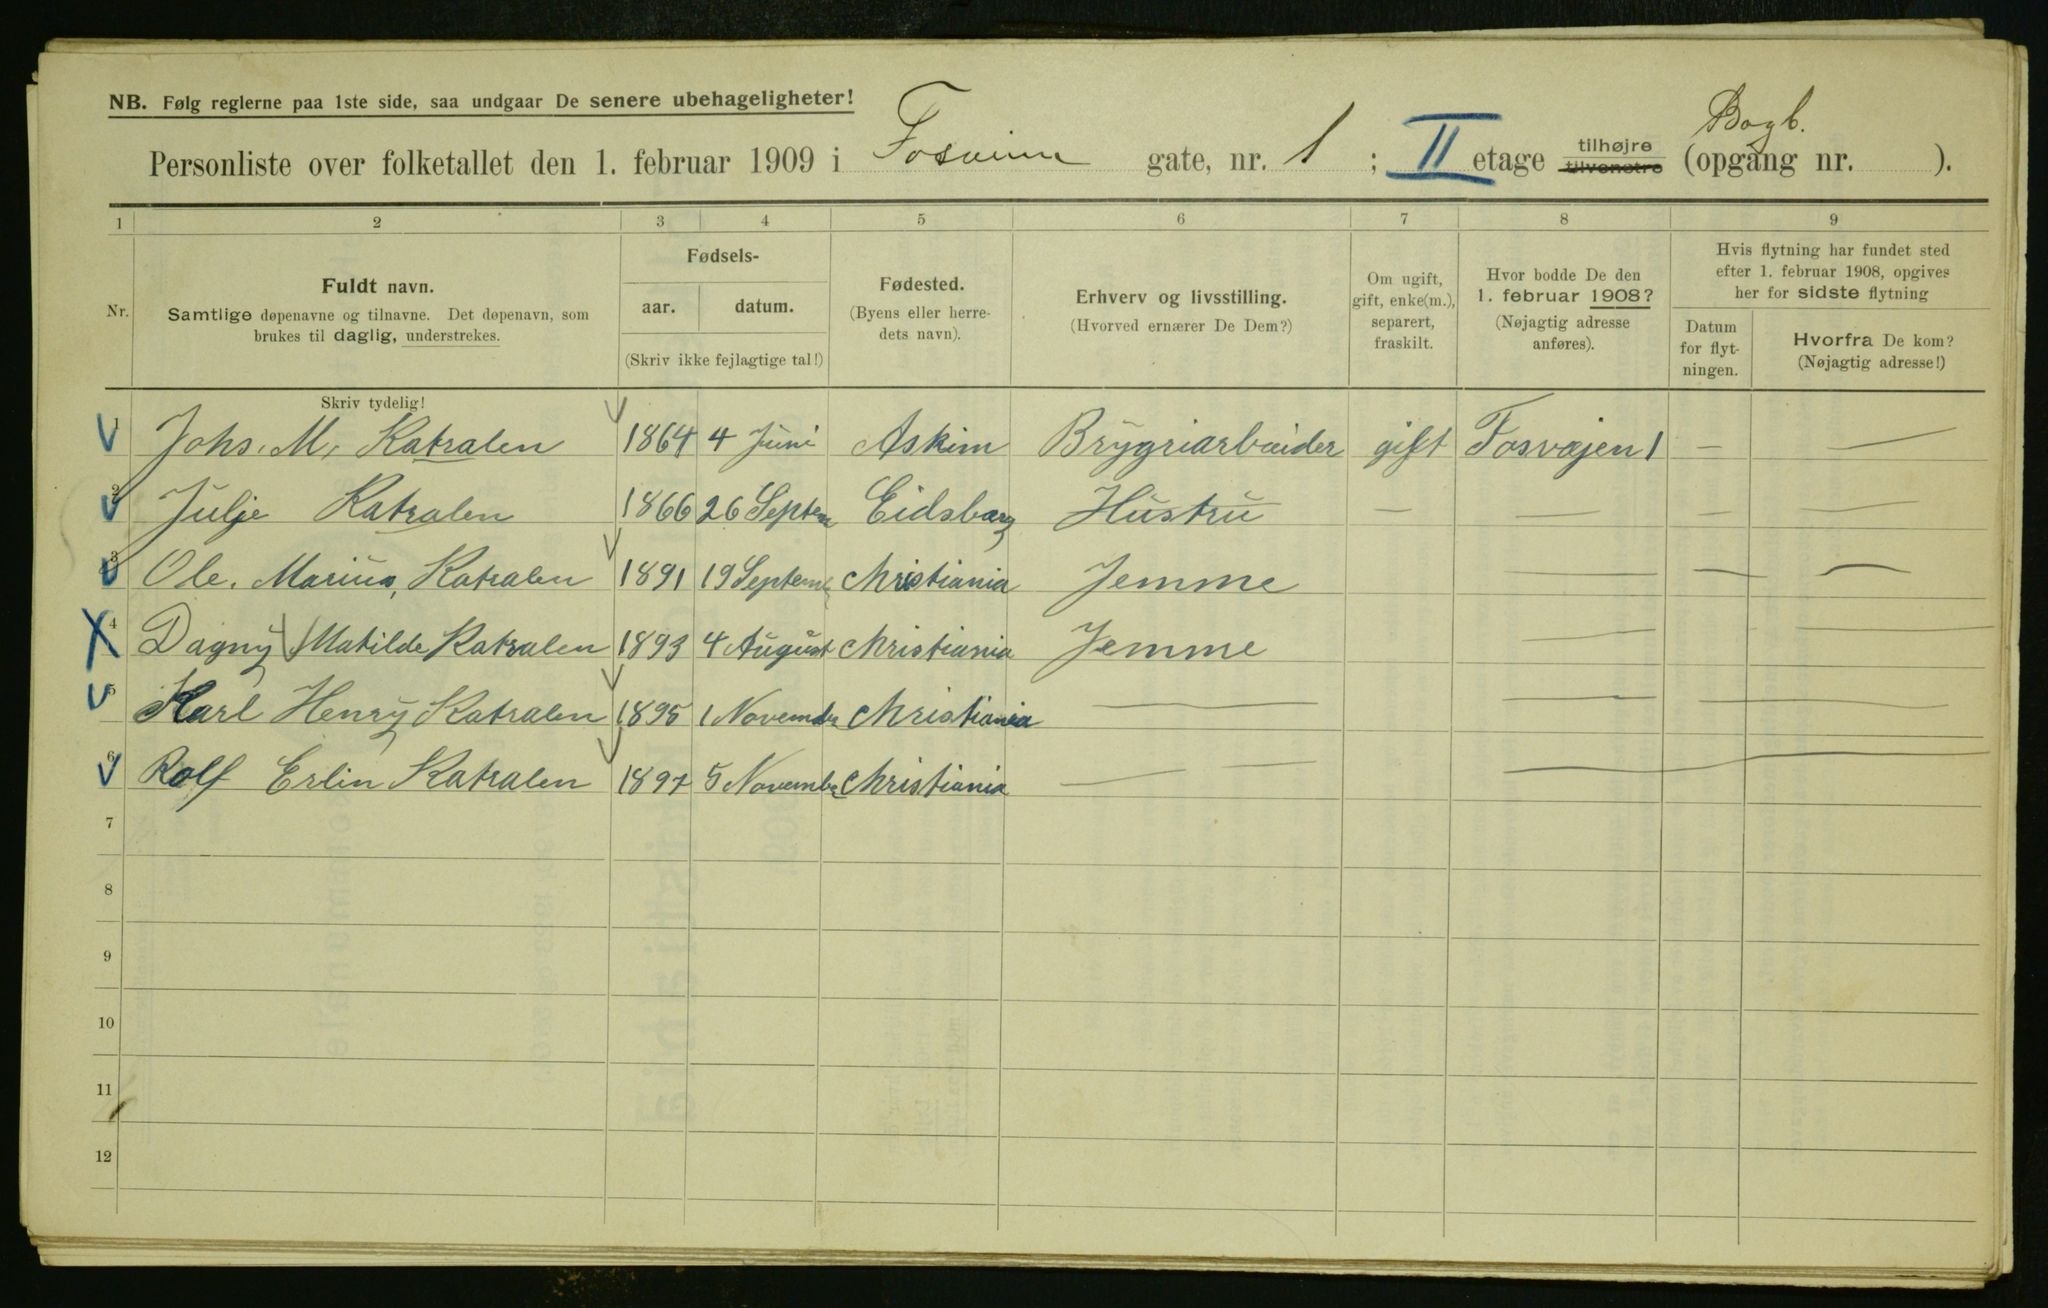 NB. Følg reglerne paa 1ste side, saa undgaar De senere ubehageligheter!
Bagb.
Personliste over folketallet den 1. februar 1909 i Fosveien gate, nr. 1 ; II etage tilhøjre tilvenstre (opgang nr. ).
1 2 3 4 5 6 7 8 9
Nr.
Fuldt navn.
Samtlige døpenavne og tilnavne. Det døpenavn, som
brukes til daglig, understrekes.
Skriv tydelig!
Fødsels-
aar. datum.
(Skriv ikke fejlagtige tal!)
Fødested.
(Byens eller herre-
dets navn).
Erhverv og livsstilling.
(Hvorved ernærer De Dem?)
Om ugift,
gift, enke(m.),
separert,
fraskilt.
Hvor bodde De den
1. februar 1908?
(Nøjagtig adresse
anføres).
Hvis flytning har fundet sted
efter 1. februar 1908, opgives
her for sidste flytning
Datum
for flyt-
ningen.
Hvorfra De kom?
(Nøjagtig adresse!)
1 Johs. M. Katralen 1864 4 Juni Askim Brygriarbeider gift Fosvejen 1 — —
2 Julje Katralen 1866 26 Septem Eidsberg Hustru — — — —
3 Ole. Marius, Katralen 1891 19 Septem Christiania Jemme — — —
4 Dagny Matilde Katralen 1893 4 August Christiania Jemme — —
5 Karl Henry Katralen 1895 1 November Christiania — — —
6 Rolf Erlin Katralen 1897 5 November Christiania — — —
7
8
9
10
11
12